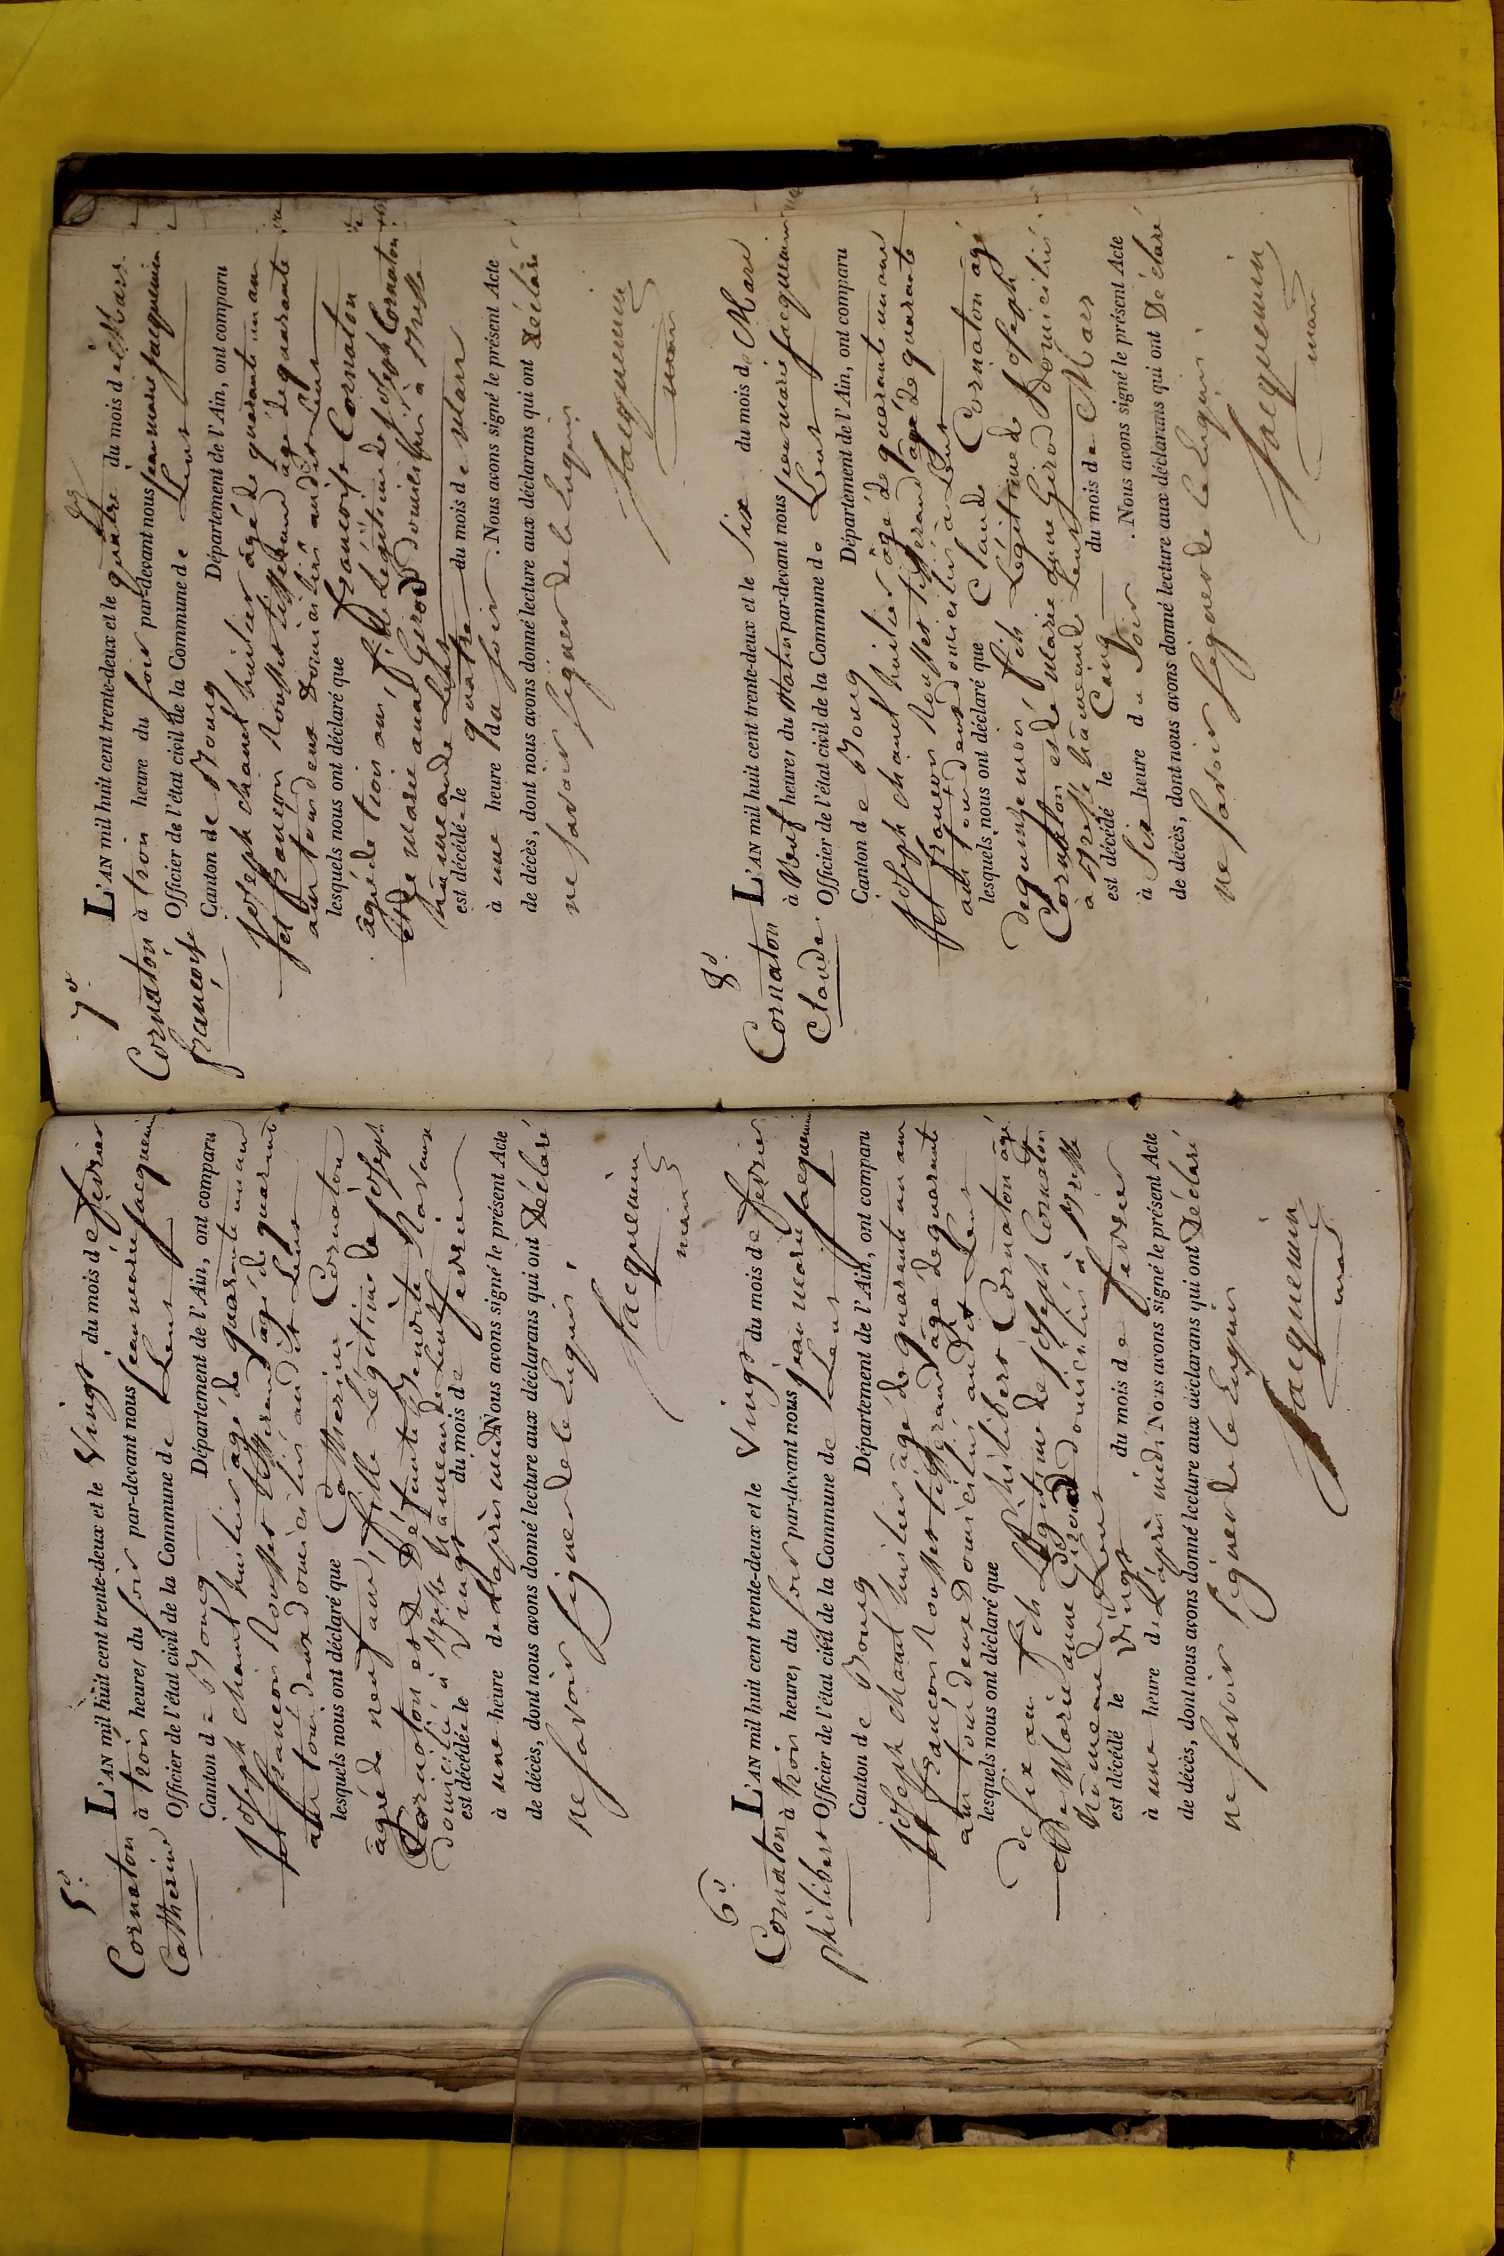 5º
Cornaton
Catherine
L'AN mil huit cent trente-deux et le Vingt du mois de fevrier
à trois heures du soir par-devant nous jean marie jacquemin
Officier de l'état civil de la Commune de Lent
Canton de Bourg Département de l'Ain, ont comparu
joseph chanel huilier âgé de quarante un ans
et françois Rousset tisserand âgé de quarante
ans tous deux domiciliés audit Lent
lesquels nous ont déclaré que Catherine Cornaton
âgée de neuf ans, fille Légitime de joseph
Cornaton et de Défunte
domicilié à hameau de Lent
est décédée le Vingt du mois de fevrier
à une heure de laprès midi Nous avons signé le présent Acte
de décès, dont nous avons donné lecture aux déclarans qui ont Déclaré
ne savoir signer de le Enquis,
Jacquemin
maire
6º
Cornaton
philibert
L'AN mil huit cent trente-deux et le Vingt du mois de fevrier
à trois heures du soir par-devant nous jean marie jacquemin
Officier de l'état civil de la Commune de Lent
Canton de Bourg Département de l'Ain, ont comparu
joseph chanel huilier âgé de quarante un ans
et françois Rousset tisserand âgé de quarante
ans tous deux Domiciliés audit Lent
lesquels nous ont déclaré que Philibert Cornaton âgé
de six ans fils Légitime de joseph Cornaton
et De Marie anne Girod domiciliés à
hameau de Lent
est décédé le Vingt du mois de fevrier
à une heure de Laprès midi Nous avons signé le présent Acte
de décès, dont nous avons donné lecture aux déclarans qui ont Déclaré
ne savoir signer de le Enquis
Jacquemin
maire
7º
Cornaton
françoise
L'AN mil huit cent trente-deux et le quatre du mois de Mars
à trois heure du soir par-devant nous jean marie jacquemin
Officier de l'état civil de la Commune de Lent
Canton de Bourg Département de l'Ain, ont comparu
joseph chanel huilier âgé de quarante un ans
et françois Rousset tisserand âgé de quarante
ans tous deux Domiciliés audit Lent
lesquels nous ont déclaré que françoise Cornaton
âgée de trois ans, fille Légitime de joseph Cornaton
et de marie anne Girod domiciliés à
hameau de Lent
est décédée le quatre du mois de Mars
à une heure du soir . Nous avons signé le présent Acte
de décès, dont nous avons donné lecture aux déclarans qui ont Déclaré
ne savoir signer de le Enquis
Jacquemin
maire
8º
Cornaton
Claude
L'AN mil huit cent trente-deux et le Six du mois de Mars
à Neuf heures du Matin par-devant nous jean marie jacquemin
Officier de l'état civil de la Commune de Lent
Canton de Bourg Département de l'Ain, ont comparu
joseph chanel huilier âgé de quarante un ans
et françois Rousset tisserand âgé de quarante
ans tous deux domiciliés à Lent
lesquels nous ont déclaré que Claude Cornaton âgé
de quinze mois fils Légitime de joseph
Cornaton et de Marie anne Girod Domiciliés
à hameau de Lent
est décédé le Cinq du mois de Mars
à Six heure du Soir . Nous avons signé le présent Acte
de décès, dont nous avons donné lecture aux déclarans qui ont Déclaré
ne savoir signer de le Enquis
Jacquemin
maire